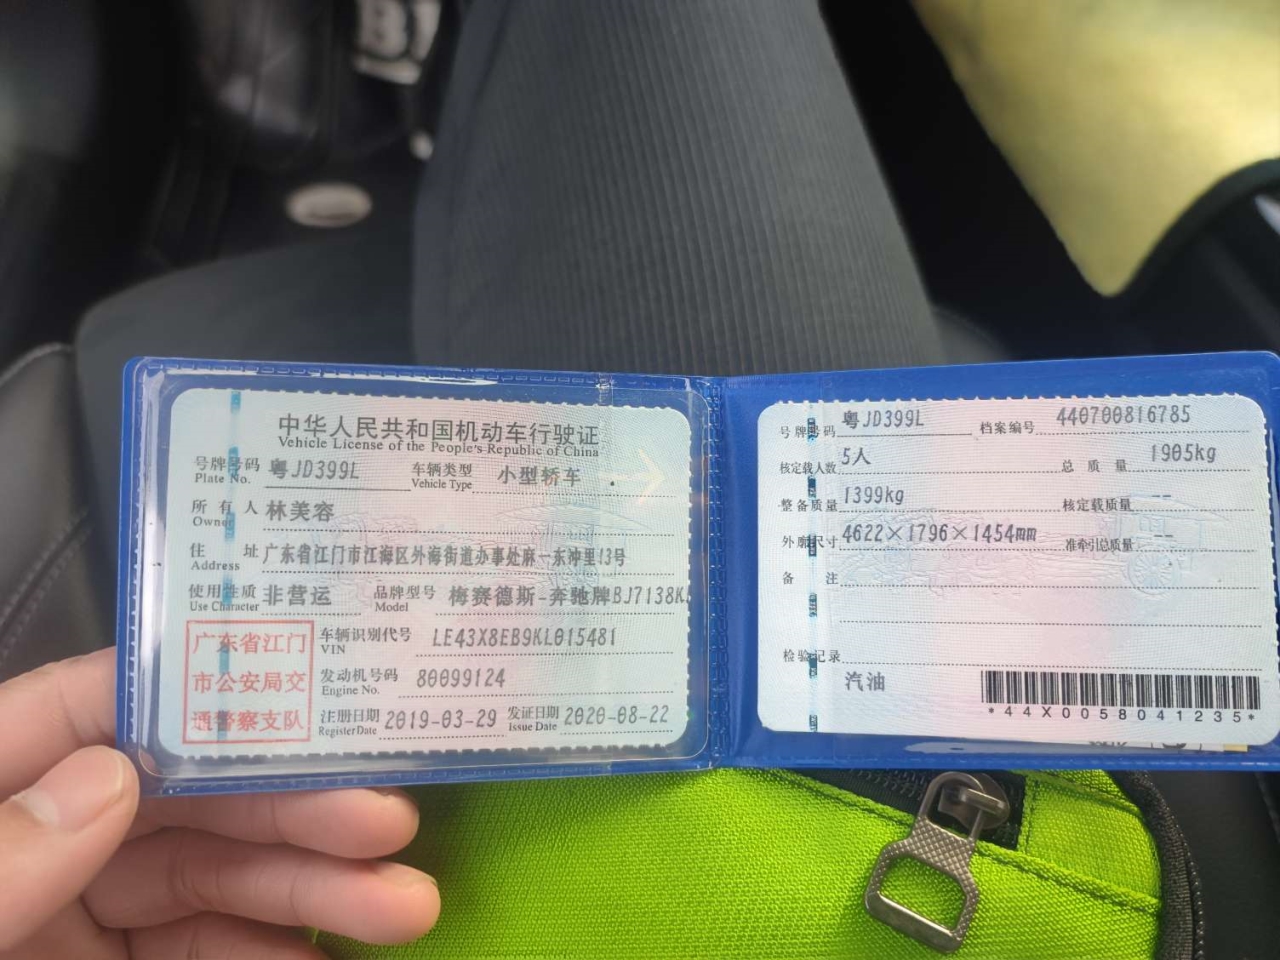 B1
中华人民共和国机动车行驶证
Vehicle License of the People's Republic of China
号牌号码 粤JD399L 车辆类型 小型轿车
Plate No. Vehicle Type
所有人 林美容
Owner
住址 广东省江门市江海区外海街道办事处麻一东冲里13号
Address
使用性质 非营运 品牌型号 梅赛德斯-奔驰牌BJ7138K
Use Character Model
广东省江门
市公安局交
通警察支队
车辆识别代号 LE43X8EB9KL015481
VIN
发动机号码 80099124
Engine No.
注册日期 2019-03-29 发证日期 2020-08-22
Register Date Issue Date
号牌号码 粤JD399L 档案编号 440700816785
核定载人数 5人 总质量 1905kg
整备质量 1399kg 核定载质量 --
外廓尺寸 4622×1796×1454mm 准牵引总质量 --
备注
检验记录
汽油
*44X0058041235*